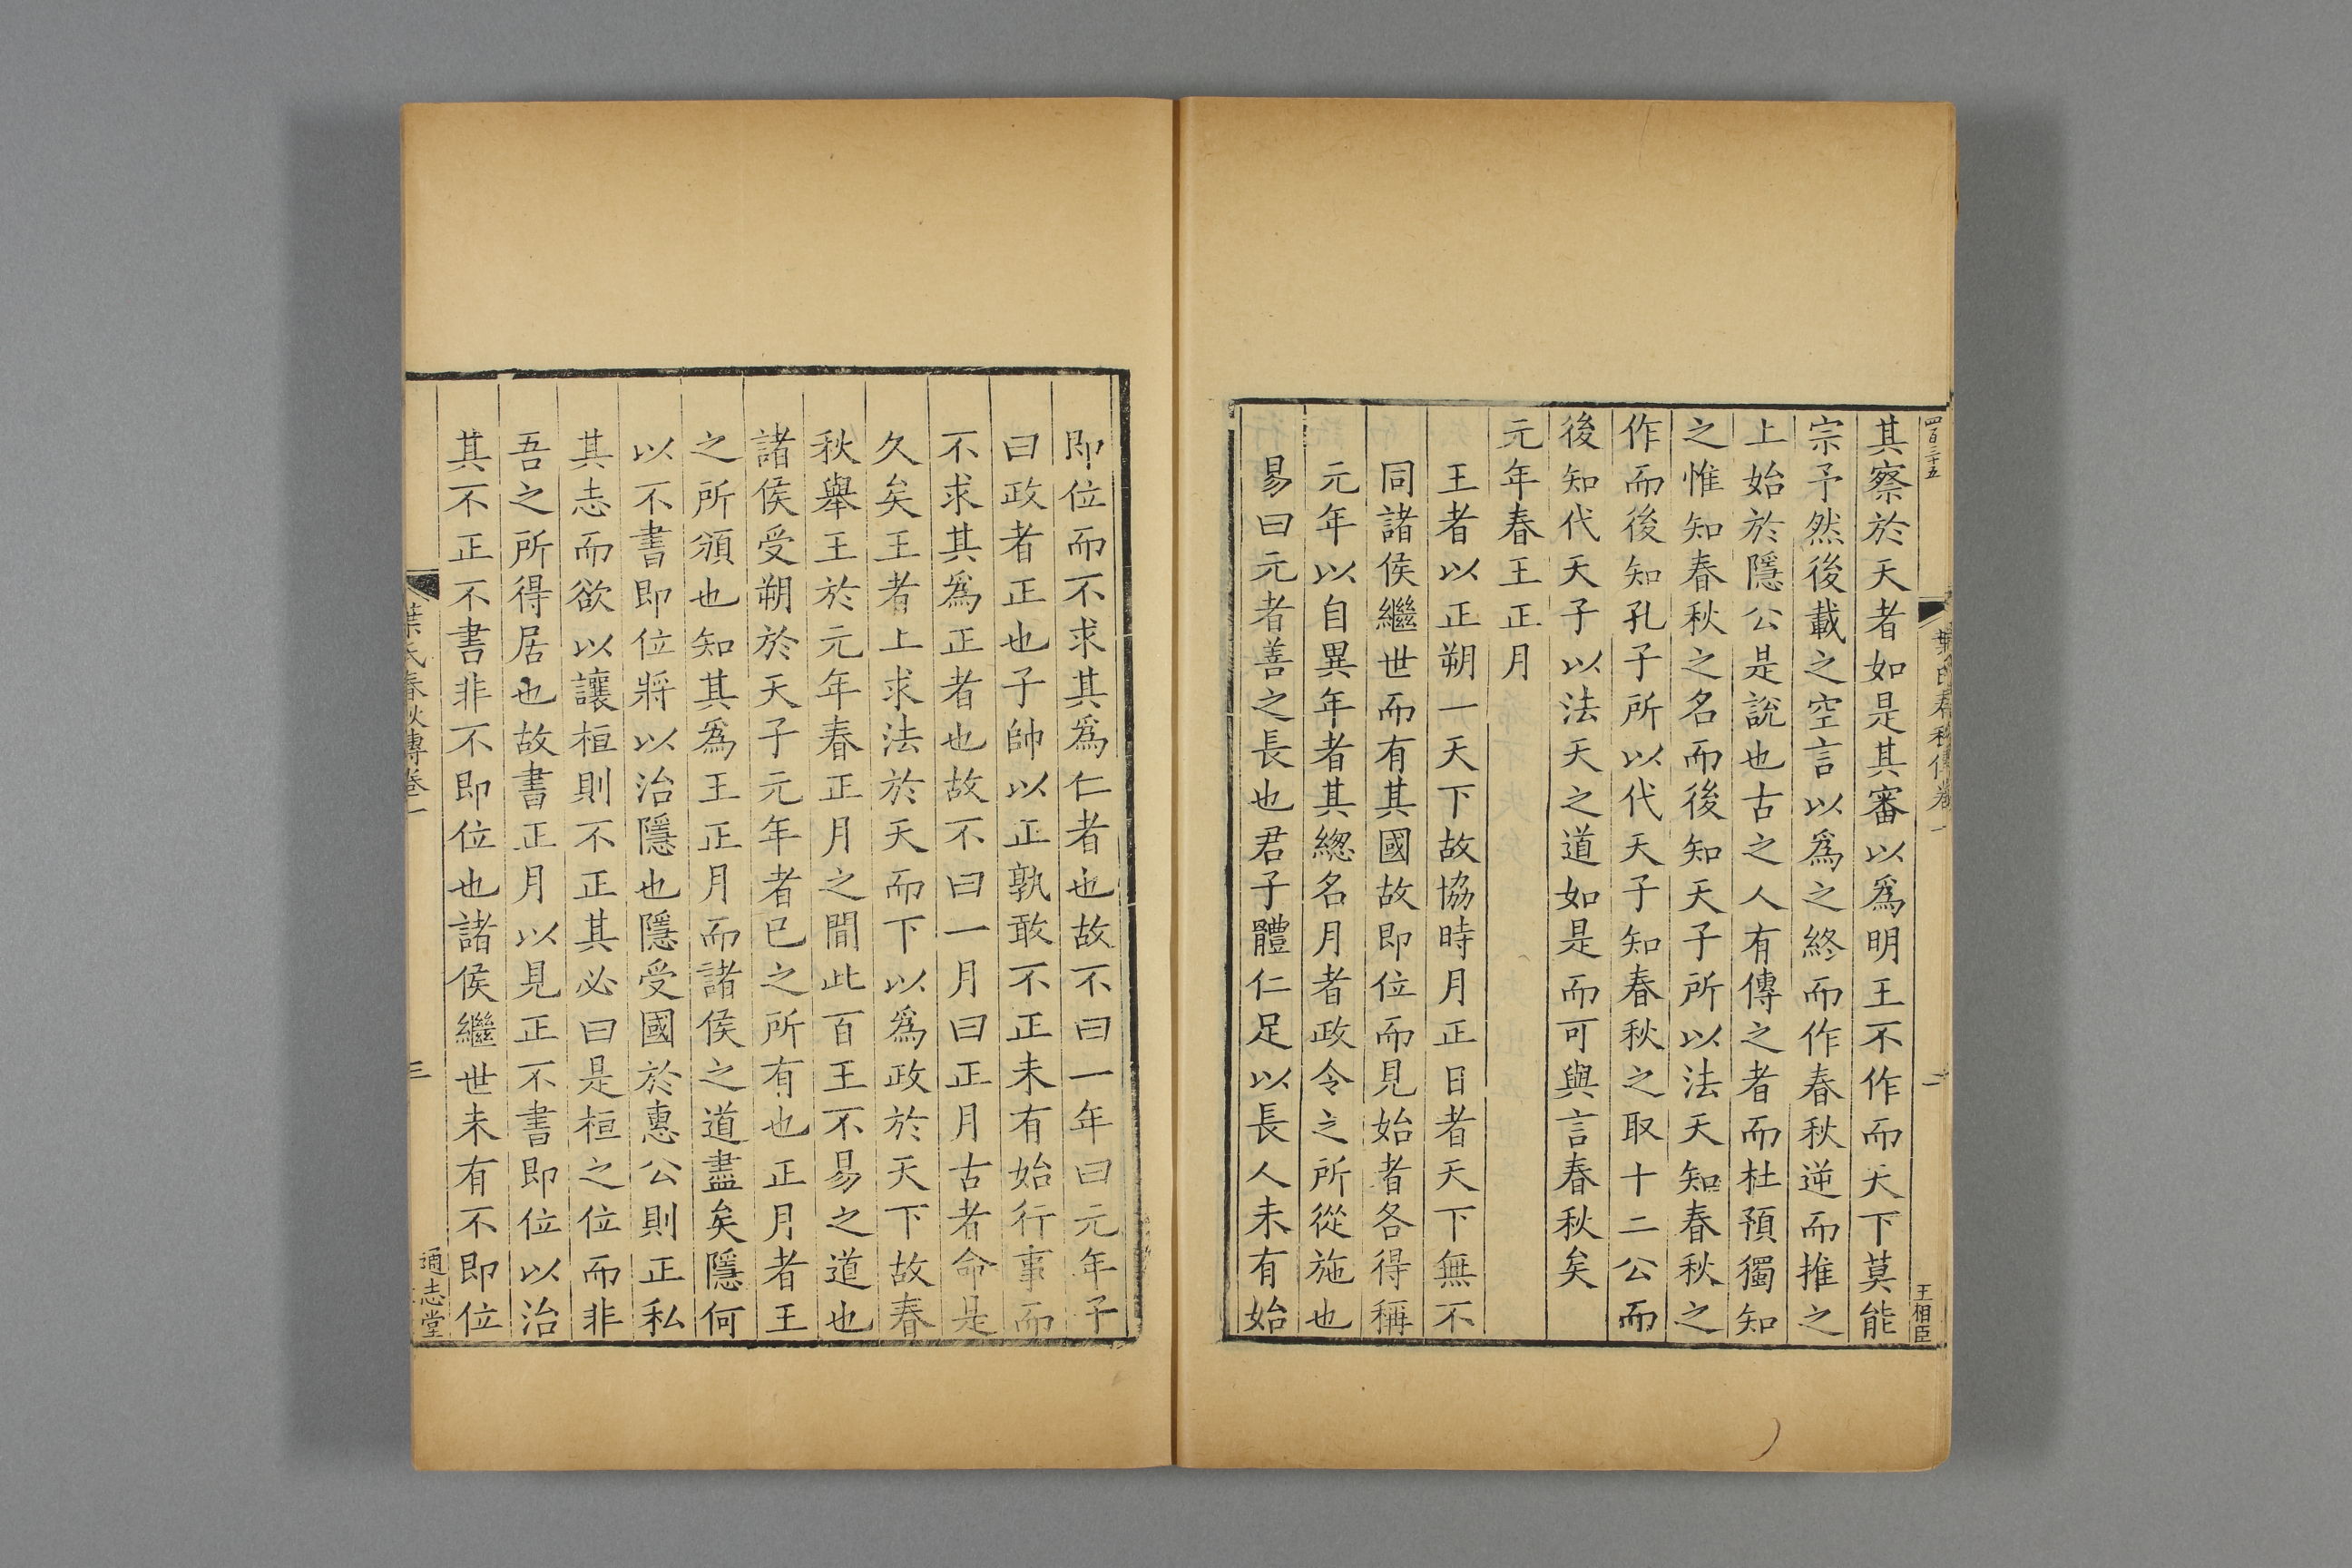 四百三十五
葉氏春秋傳卷一
二
王相臣
其察於天者如是其審以爲明王不作而天下莫能
宗予然後載之空言以爲之終而作春秋逆而推之
上始於隱公是説也古之人有傳之者而杜預獨知
之惟知春秋之名而後知天子所以法天知春秋之
作而後知孔子所以代天子知春秋之取十二公而
後知代天子以法天之道如是而可與言春秋矣
元年春王正月
王者以正朔一天下故協時月正日者天下無不
同諸侯繼世而有其國故即位而見始者各得稱
元年以自異年者其緫名月者政令之所從施也
易曰元者善之長也君子體仁足以長人未有始
即位而不求其爲仁者也故不曰一年曰元年子
曰政者正也子帥以正孰敢不正未有始行事而
不求其爲正者也故不曰一月曰正月古者命是
久矣王者上求法於天而下以爲政於天下故春
秋舉王於元年春正月之間此百王不易之道也
諸侯受朔於天子元年者已之所有也正月者王
之所頒也知其爲王正月而諸侯之道盡矣隱何
以不書即位將以治隱也隱受國於惠公則正私
其志而欲以讓桓則不正其必曰是桓之位而非
吾之所得居也故書正月以見正不書即位以治
其不正不書非不即位也諸侯繼世未有不即位
葉氏春秋傳卷一
三
通志堂